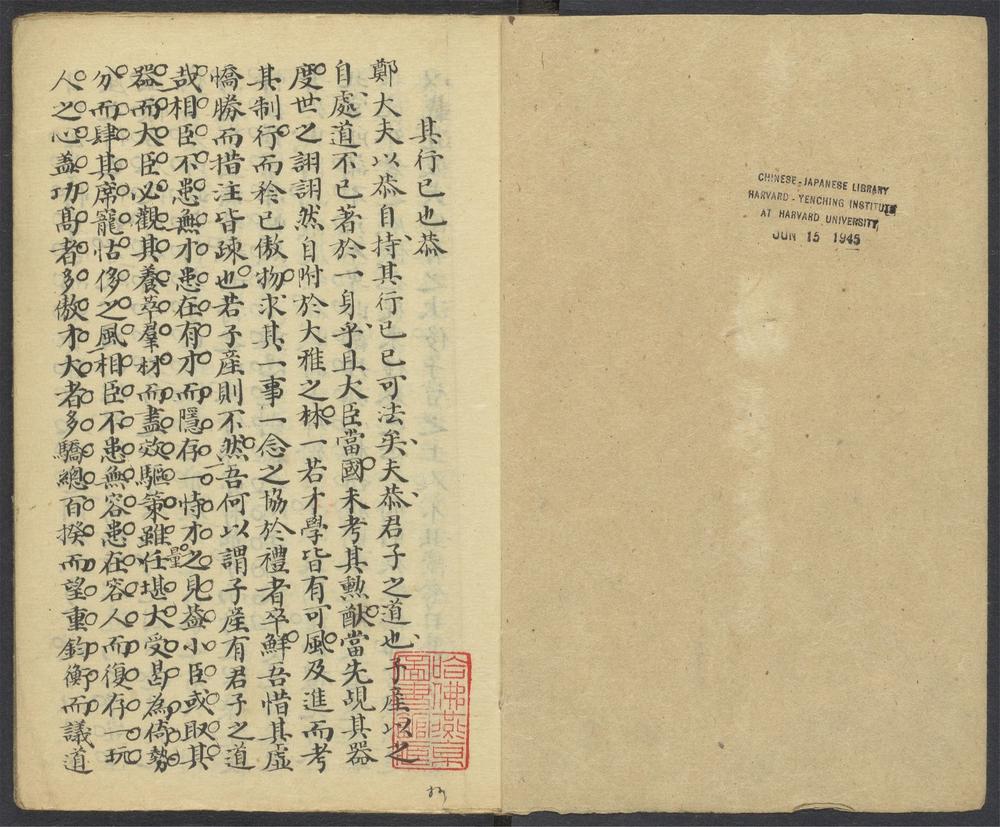 其行己也恭
鄭大夫以恭自持其行己已可法矣夫恭君子之道也子產以之
自處道不已著於一身乎且大臣當國未考其勲猷當先覘其器
度世之詡詡然自附於大雅之林一若才學皆有可風及進而考
其制行而矜己傲物求其一事一念之協於禮者卒鮮吾惜其虛
憍勝而措注皆疎也若子產則不然吾何以謂子產有君子之道
哉相臣不患無才患在有才而隱存一恃才之見葢小臣或取其
器量而大臣必觀其養萃羣材而盡效驅策雖任堪大受曷為倚勢
分而肆其席寵怙侈之風相臣不患無容患在容人而復存一玩
人之心葢功髙者多傲才大者多驕總百揆而望重鈞衡而議道
哈佛燕京圖書館
CHINESE-JAPANESE LIBRARY
HARVARD-YENCHING INSTITUTE
AT HARVARD UNIVERSITY
JUN 15 1945